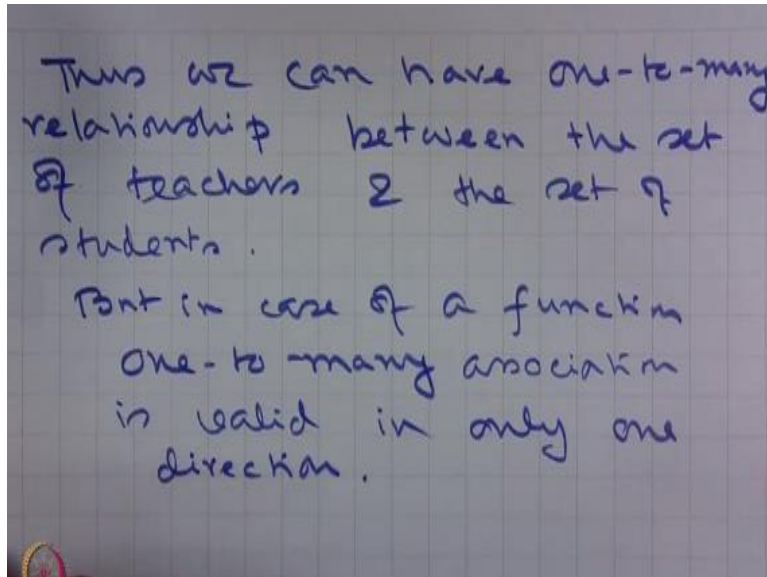 Thus we can have one-to-many
relationship between the set
of teachers & the set of
students.
But in case of a function
one-to-many association
is valid in only one
direction.